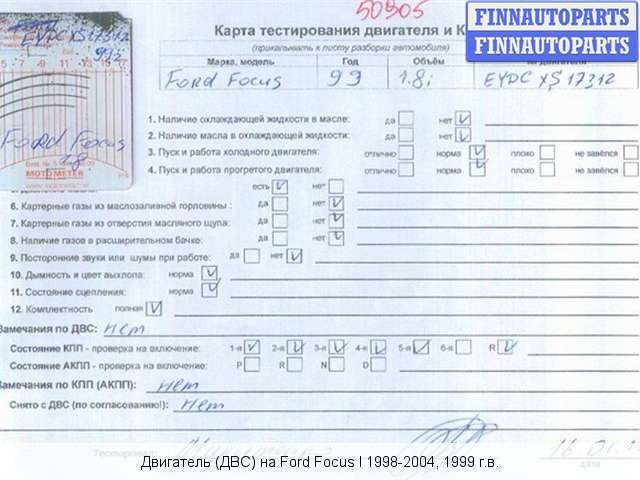 50905
FINNAUTOPARTS
FINNAUTOPARTS
Карта тестирования двигателя и К
(прикалывать к листу разборки автомобиля)
Марка, модель Год Объём
Ford Focus 99 1.8i EYDC XS17312
EYDC XS17312
993
5 7 9 11 13 15 17
Ford Focus
1.8
MOTOMETER
1. Наличие охлаждающей жидкости в масле: да нет
2. Наличие масла в охлаждающей жидкости: да нет
3. Пуск и работа холодного двигателя: отлично норма плохо не завёлся
4. Пуск и работа прогретого двигателя: отлично норма плохо не завёлся
есть нет
6. Картерные газы из маслозаливной горловины : да нет
7. Картерные газы из отверстия масляного щупа: да нет
8. Наличие газов в расширительном бачке: да нет
9. Посторонние звуки или шумы при работе: да нет
10. Дымность и цвет выхлопа: норма
11. Состояние сцепления: норма
12. Комплектность полная
Замечания по ДВС: нет
Состояние КПП - проверка на включение: 1-я 2-я 3-я 4-я 5-я 6-я R
Состояние АКПП - проверка на включение: P R N D
Замечания по КПП (АКПП): нет
Снято с ДВС (по согласованию!): нет
Тестировал
16.01.1
дата
Двигатель (ДВС) на Ford Focus I 1998-2004, 1999 г.в.